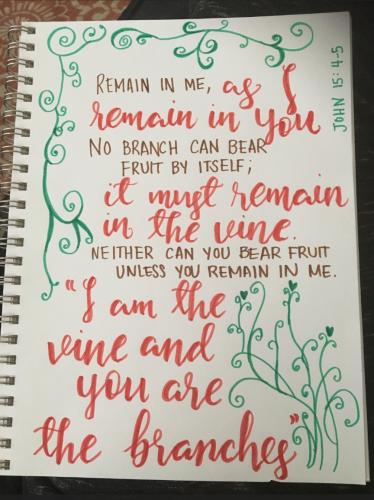 REMAIN IN ME, as I
remain in you
NO BRANCH CAN BEAR
FRUIT BY ITSELF;
it must remain
in the vine.
NEITHER CAN YOU BEAR FRUIT
UNLESS YOU REMAIN IN ME.
"I am the
vine and
you are
the branches"
JOHN 15:4-5